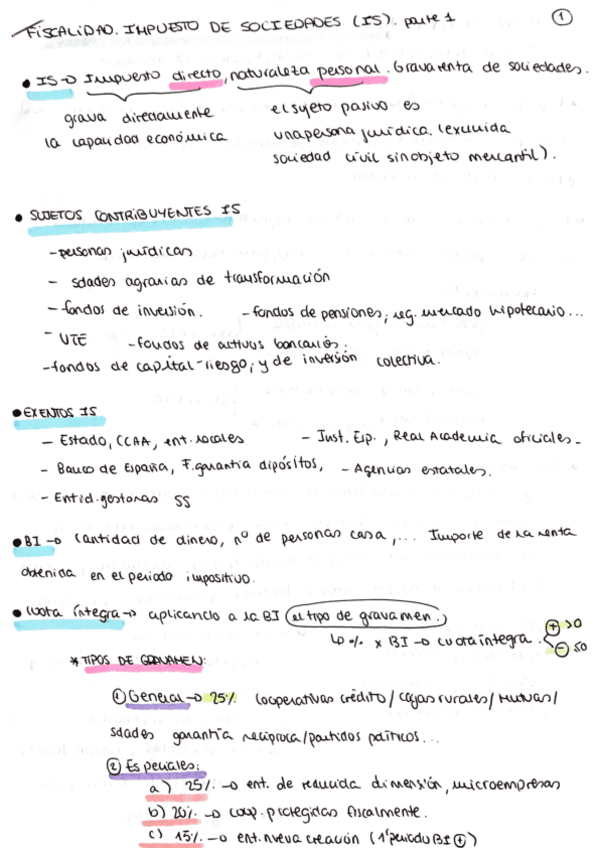 FISCALIDAD. IMPUESTO DE SOCIEDADES (IS). parte 1
1
• IS → Impuesto directo, naturaleza personal. Grava renta de sociedades.
grava directamente la capacidad económica
el sujeto pasivo es una persona jurídica. (excluida sociedad civil sin objeto mercantil).
• SUJETOS CONTRIBUYENTES IS
- personas jurídicas
- sdades agrarias de transformación
- fondos de inversión. - fondos de pensiones, reg. mercado hipotecario...
- UTE - fondos de activos bancarios.
- fondos de capital-riesgo, y de inversión colectiva.
• EXENTOS IS
- Estado, CCAA, ent. locales - Inst. Esp., Real Academia oficiales -
- Banco de España, F. garantía dipósitos, - Agencias estatales.
- Entid. gestoras SS
• BI → Cantidad de dinero, nº de personas casa,... Importe de la renta
obtenida en el periodo impositivo.
• Cuota íntegra → aplicando a la BI (el tipo de gravamen.)
↳ % x BI → cuota íntegra. + >0
- SO
* TIPOS DE GRAVAMEN:
1 General → 25% Cooperativas crédito/Cajas rurales/Mutuas/
sdades garantía recíproca/partidos políticos...
2 Especiales:
a) 25% → ent. de reducida dimensión, microempresas
b) 20% → coop. protegidas fiscalmente.
c) 15% → ent. nueva creación (1º periodo BI +)